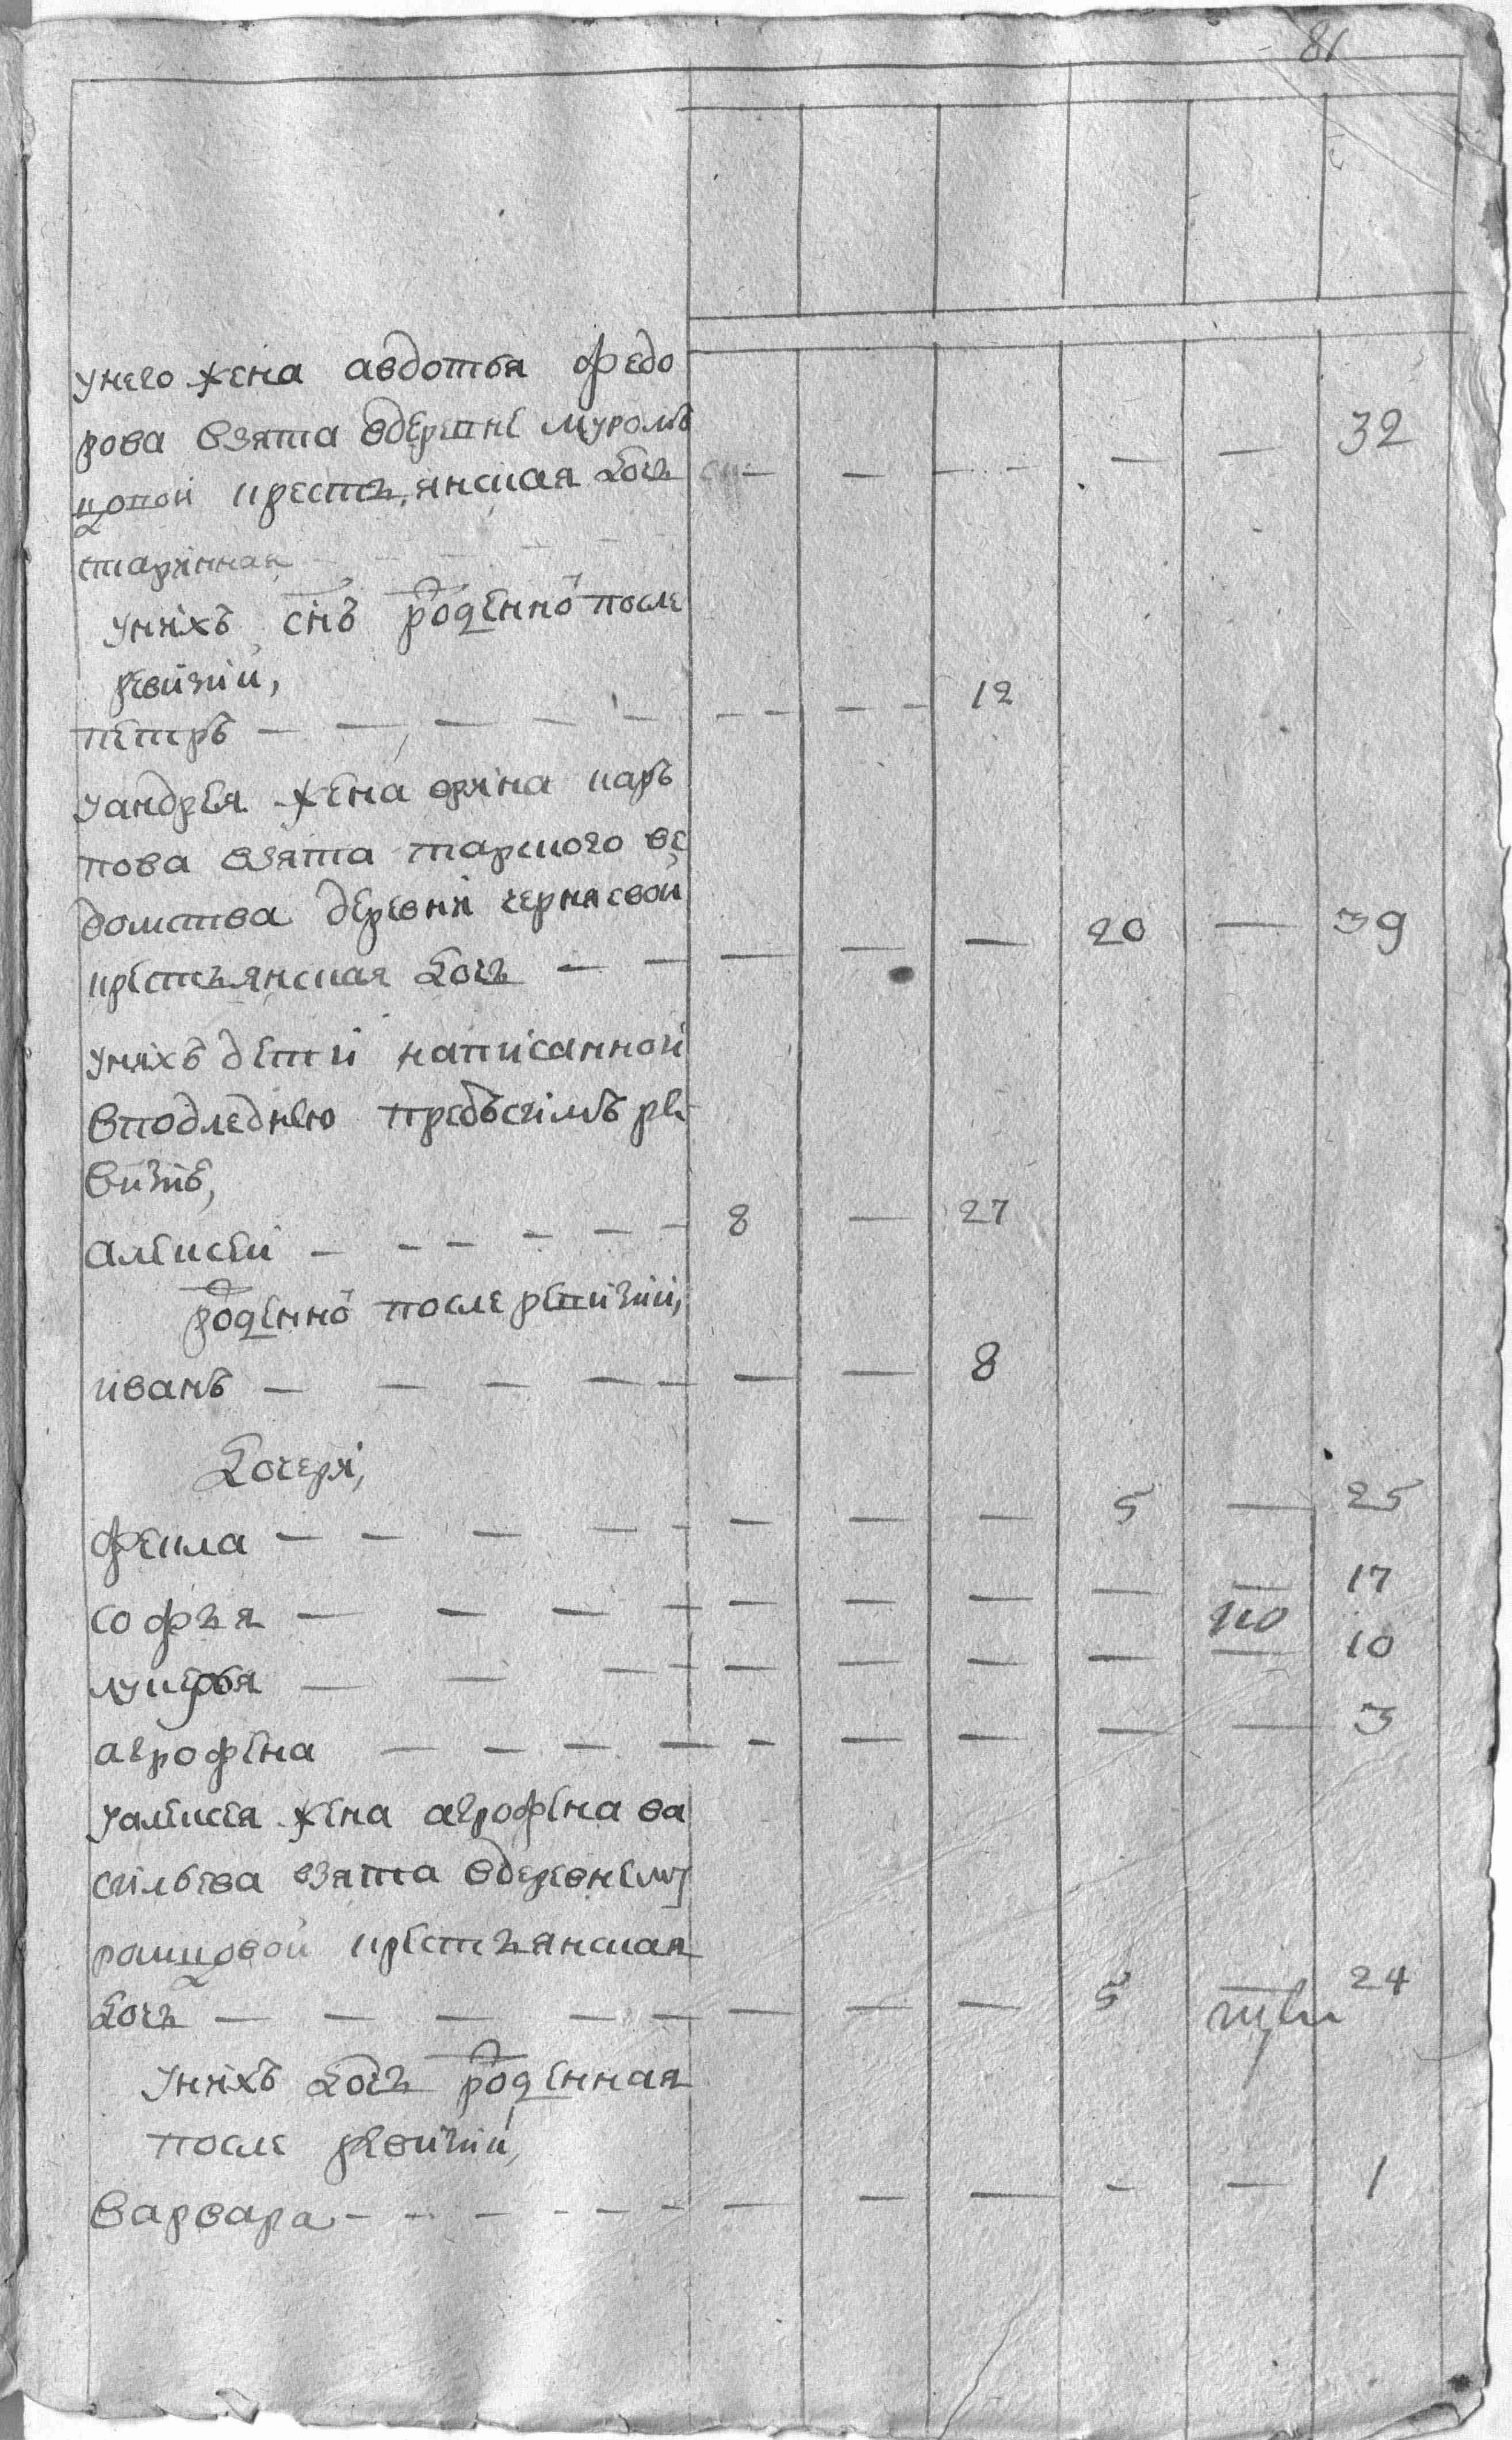 81
унего жена авдотья федо
рова взята вдеревне муромъ
цовой крестьянская дочь — — — — — 32
старинная
унихъ снъ рожденно после
ревизии,
петръ — — — 12
уандрея жена орина кар
пова взята тарского ве
домства деревни черняевой
крестьянская дочь — — — 20 — 39
унихъ дети написанной
вподледнею предъсимъ ре
визию,
алексеи — 8 — 27
рожденно после ревизии,
иванъ — — — 8
дочери,
фекла — — — — 5 — 25
софья — — — — — — 17
лукерья — — — — — — 10
агрофена — — — — — — 3
уалексея жена агрофена ва
сильева взята вдеревне му
ромцовой крестьянская
дочь — — — — 5 — 24
унихъ дочь рожденная
после ревизии,
варвара — — — — — — 1